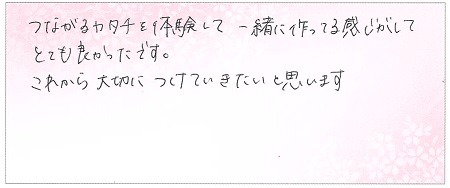 つながるカタチを体験して 一緒に作ってる感じがして
とても良かったです。
これから大切につけていきたいと思います